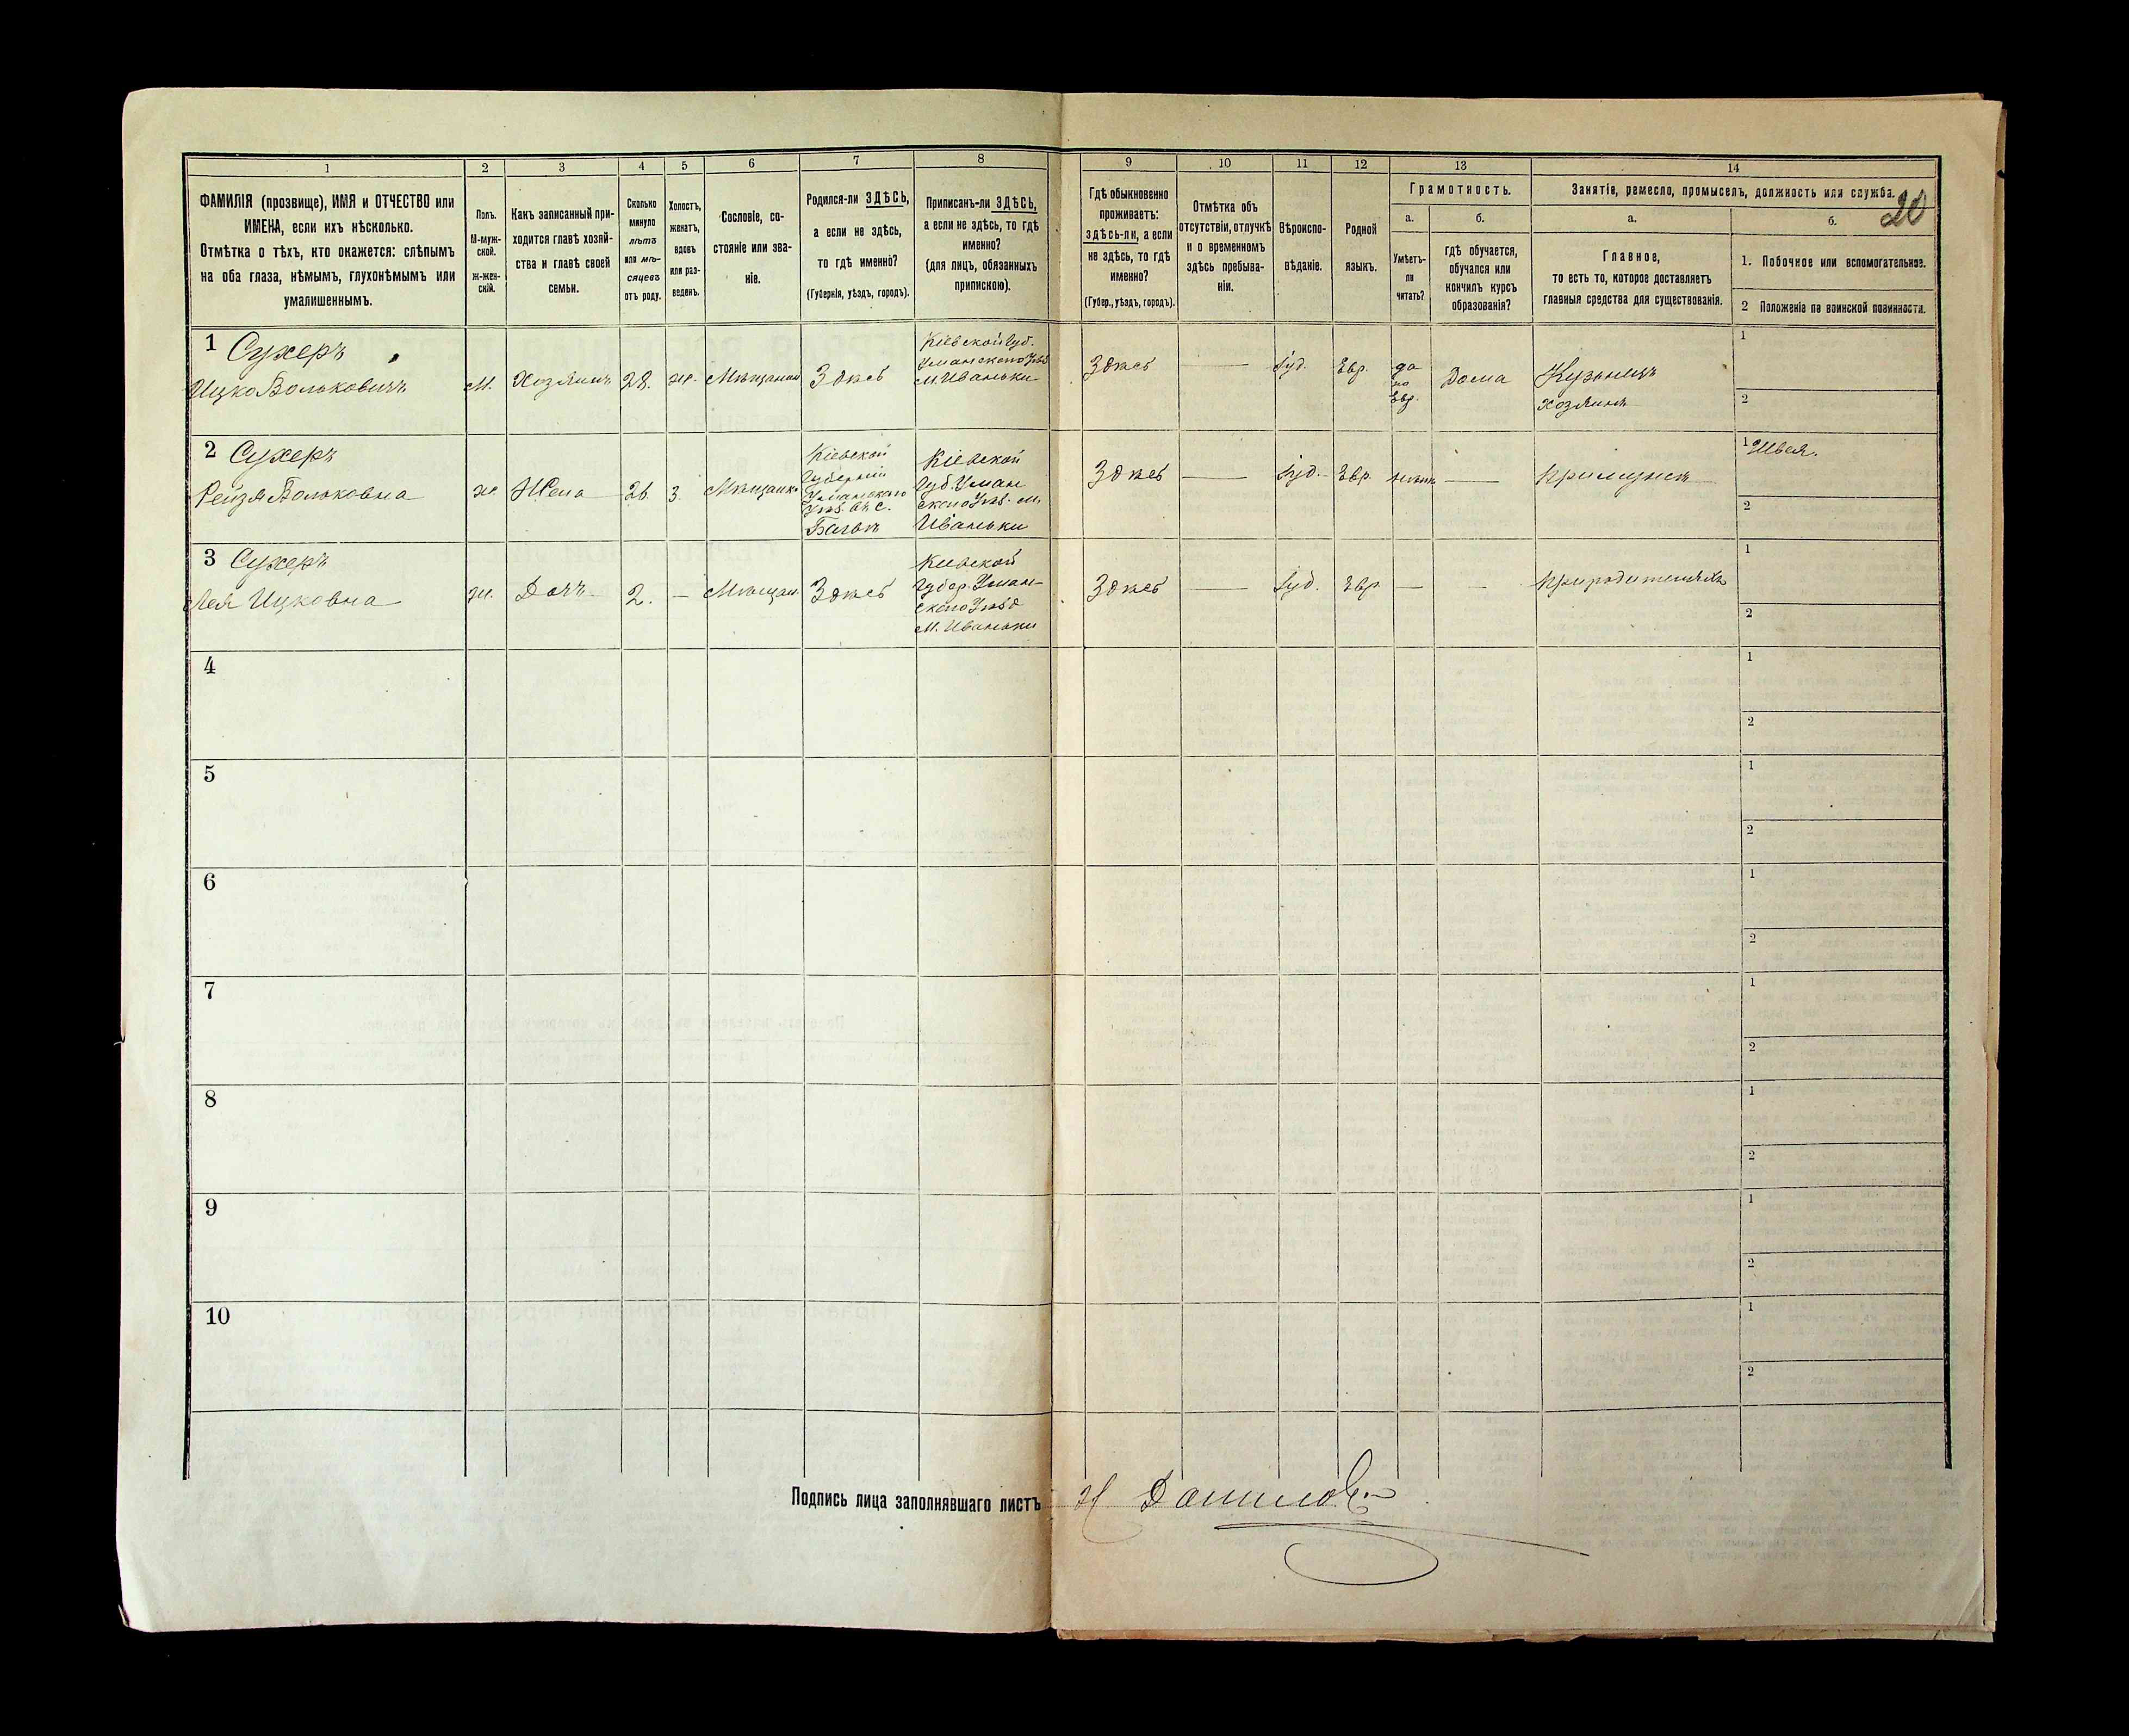 1
2
3
4
5
6
7
8
9
10
11
12
13
14
20
ФАМИЛІЯ (прозвище), ИМЯ и ОТЧЕСТВО или
ИМЕНА, если ихъ нѣсколько.
Отмѣтка о тѣхъ, кто окажется: слѣпымъ
на оба глаза, нѣмымъ, глухонѣмымъ или
умалишеннымъ.
Полъ.
М-муж-
ской.
ж-жен-
скій.
Какъ записанный при-
ходится главѣ хозяй-
ства и главѣ своей
семьи.
Сколько
минуло
лѣтъ
или мѣ-
сяцевъ
отъ роду.
Холостъ,
женатъ,
вдовъ
или раз-
веденъ.
Сословіе, со-
стояніе или зва-
ніе.
Родился-ли ЗДѢСЬ,
а если не здѣсь,
то гдѣ именно?
(Губернія, уѣздъ, городъ).
Приписанъ-ли ЗДѢСЬ,
а если не здѣсь, то гдѣ
именно?
(для лицъ, обязанныхъ
припискою).
Гдѣ обыкновенно
проживаетъ:
здѣсь-ли, а если
не здѣсь, то гдѣ
именно?
(Губер., уѣздъ, городъ).
Отмѣтка объ
отсутствіи, отлучкѣ
и о временномъ
здѣсь пребыва-
ніи.
Вѣроиспо-
вѣданіе.
Родной
языкъ.
Грамотность.
а.
Умѣетъ-
ли
читать?
б.
гдѣ обучается,
обучался или
кончилъ курсъ
образованія?
Занятіе, ремесло, промыселъ, должность или служба.
а.
Главное,
то есть то, которое доставляетъ
главныя средства для существованія.
б.
1. Побочное или вспомогательное.
2 Положеніе по воинской повинности.
1 Сухеръ
Ицко Вольковичъ
м.
Хозяинъ
28.
ж.
Мѣщанин
Здѣсь
Кіевской Губ.
Уманского Уѣзд
м. Иваньки
Здѣсь
Іуд.
Евр.
да
по
Евр.
Дома
Кузнецъ
хозяинъ
1
2
2 Сухеръ
Рейзя Вольковна
ж.
Жена
26.
З.
Мѣщанка
Кіевской
Губерніи
Уманского
Уѣзд. въ с.
Кіевской
Губ. Уман
ского Уѣзд. м.
Иваньки
Здѣсь
Іуд.
Евр.
нѣтъ
При мужѣ
1 Швея.
2
3 Сухеръ
Лея Ицковна
ж.
Дочь
2.
Мѣщан.
Здѣсь
Кіевской
Губер. Уман-
ского Уѣзд
м. Иваньки
Здѣсь
Іуд.
Евр.
При родителяхъ
1
2
4
1
2
5
1
2
6
1
2
7
1
2
8
1
2
9
1
2
10
1
2
Подпись лица заполнявшаго листъ